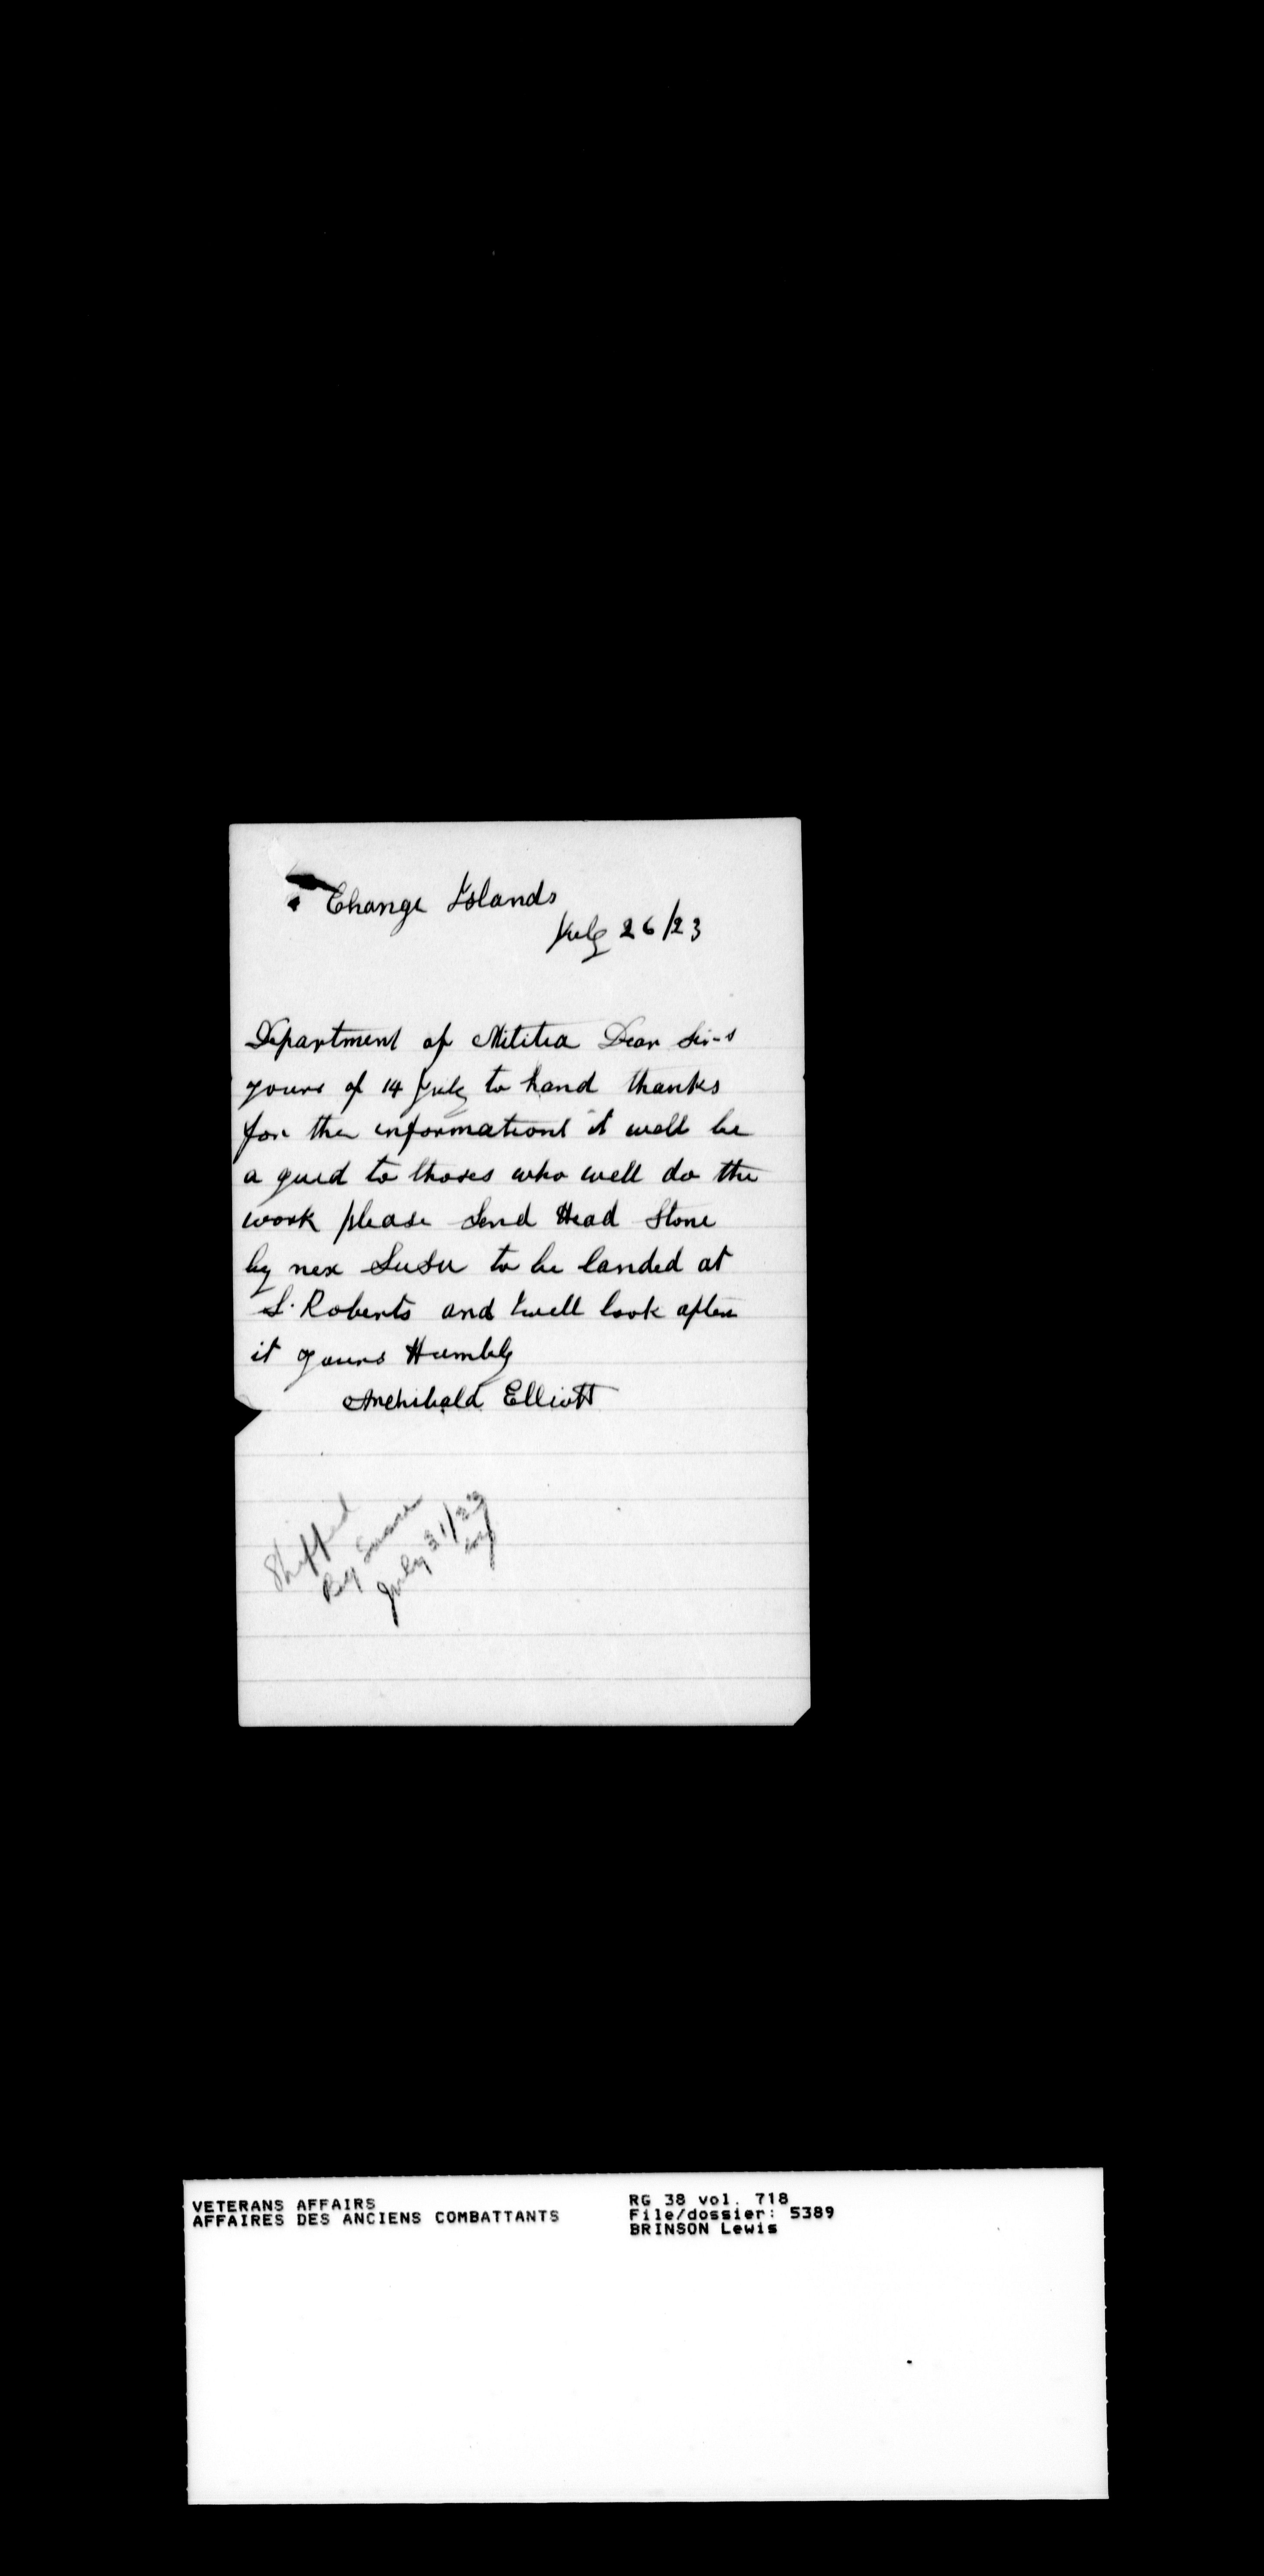 Change Islands
July 26/23
Department of Mititia Dear Sir-s
yours of 14 July to hand thanks
for the informationl it well be
a gued to thoses who well do the
work please Send Head Stone
by nex Susu to be landed at
S. Roberts and I well look after
it yours Humbly
Archibald Elliott
Shipped
By
July 31/23
VETERANS AFFAIRS
AFFAIRES DES ANCIENS COMBATTANTS
RG 38 vol. 718
File/dossier: 5389
BRINSON Lewis